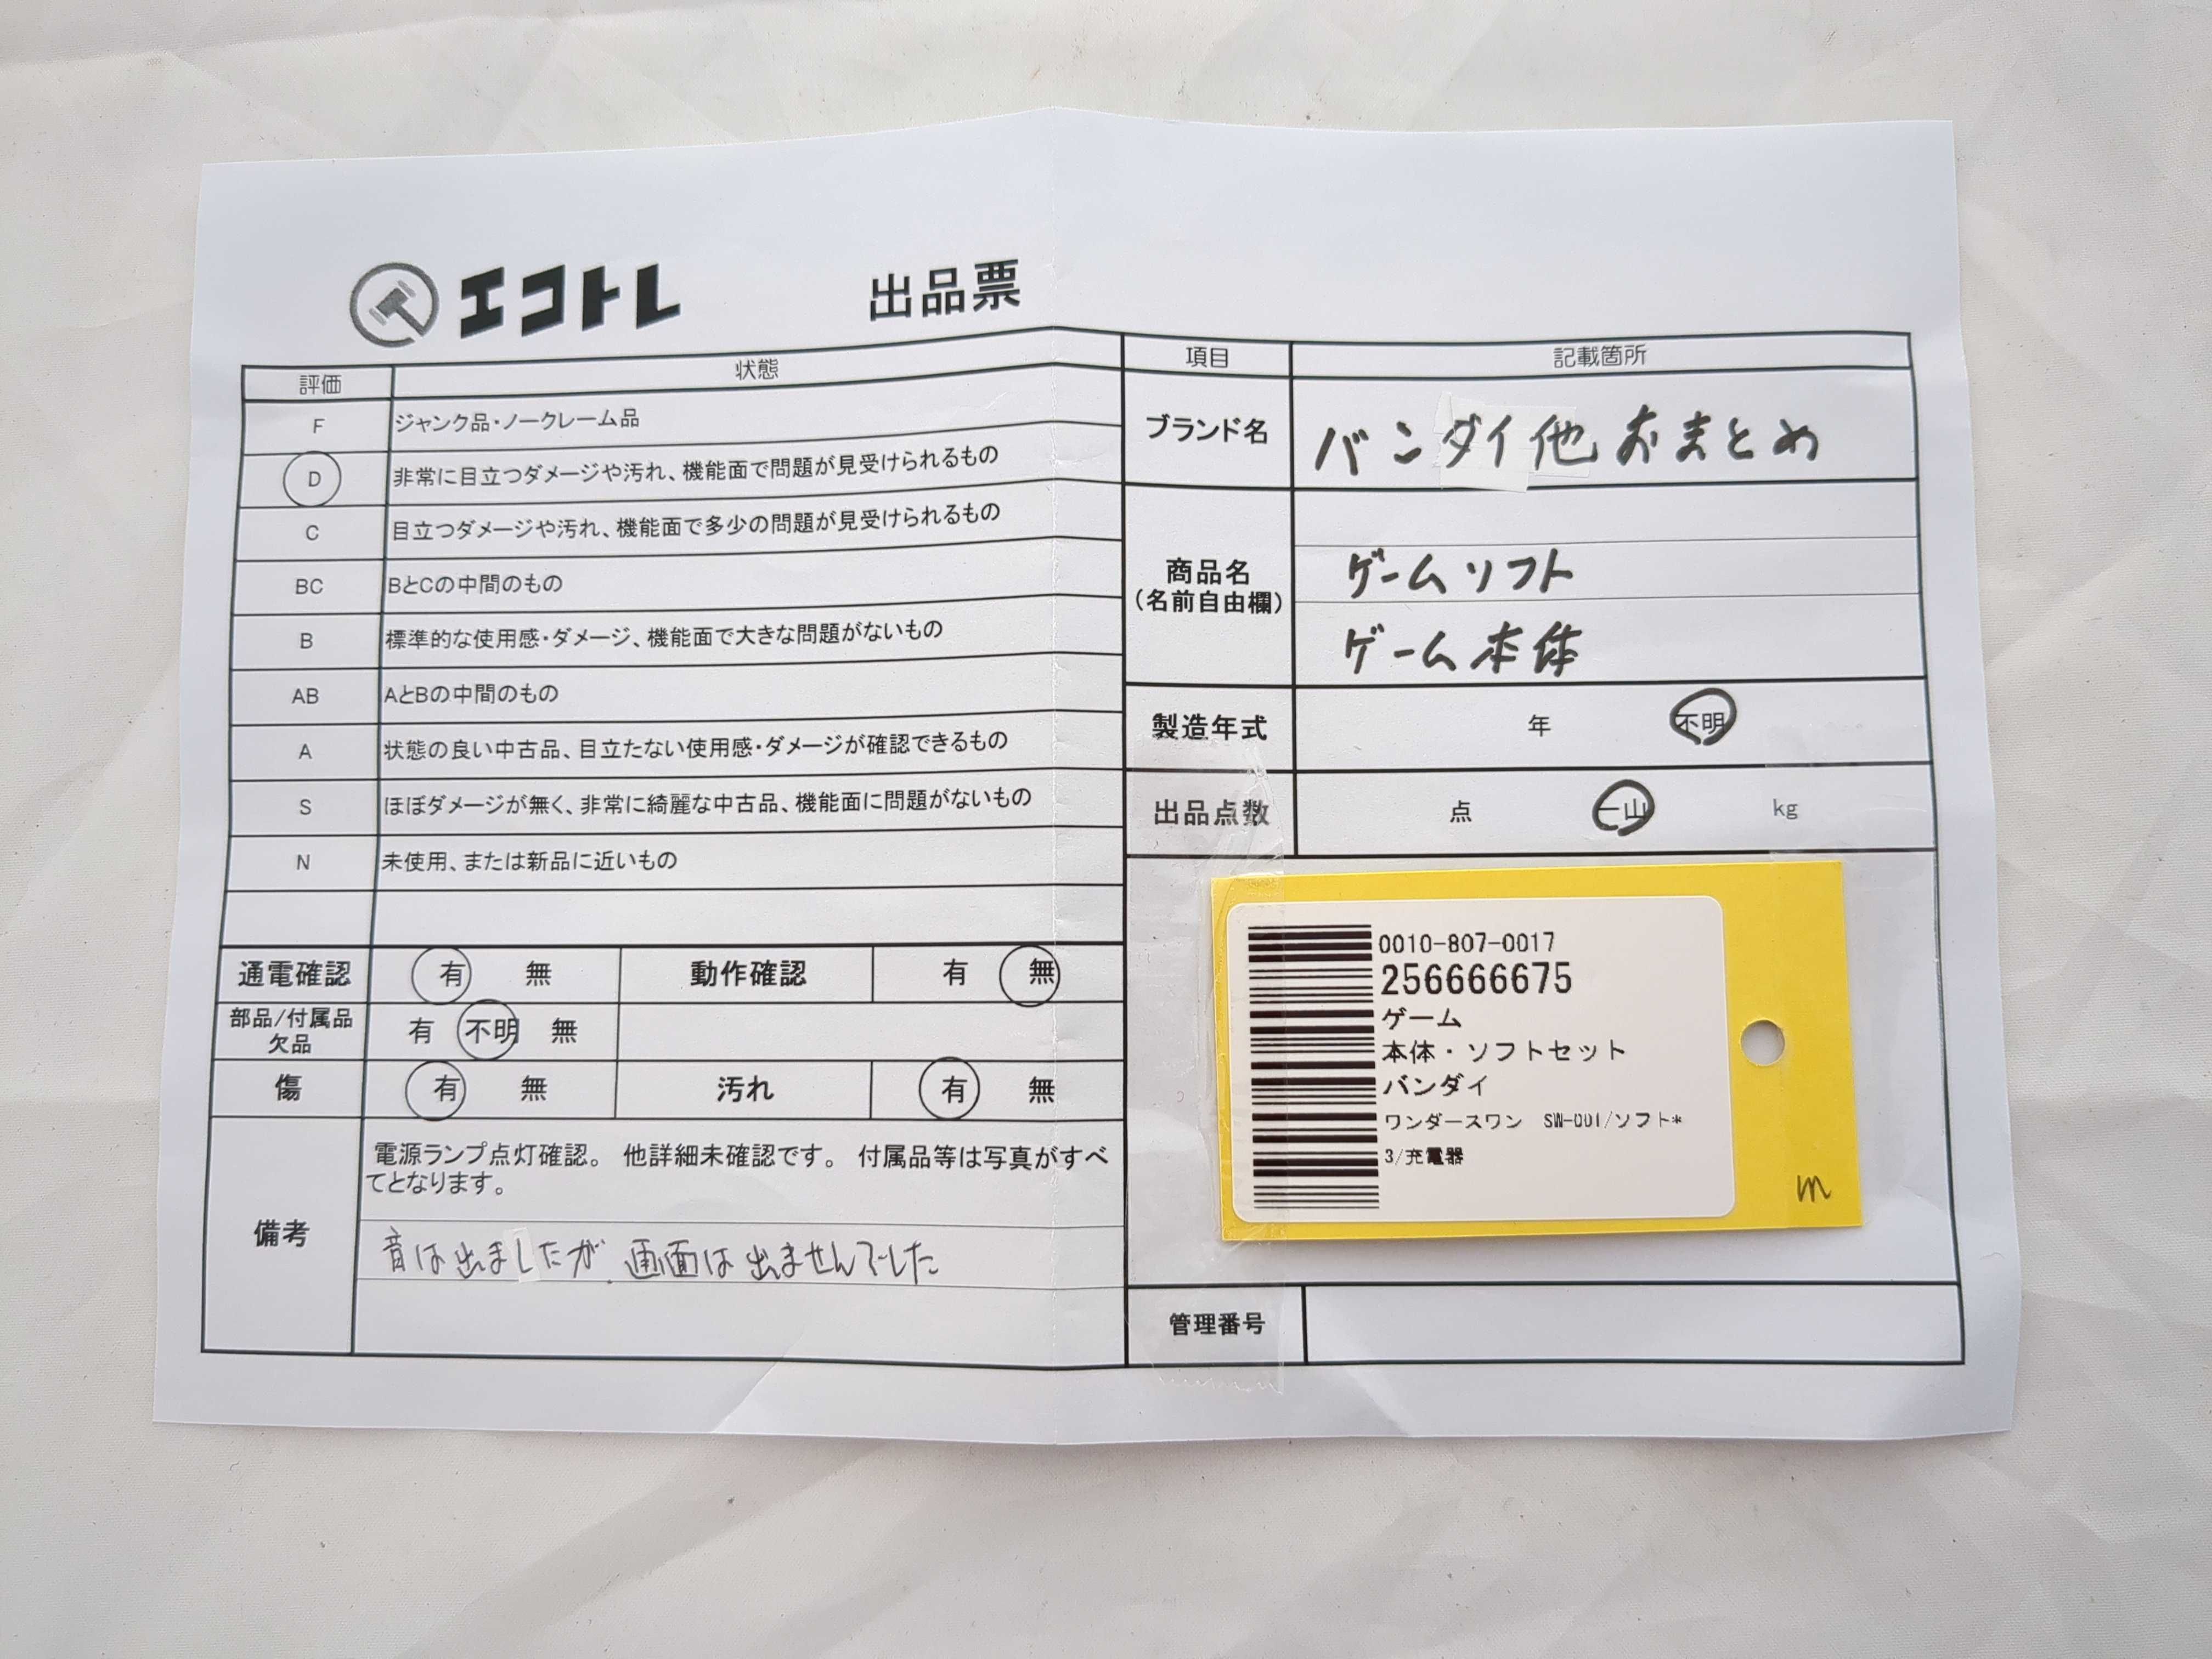 エコトレ 出品票
評価 状態
F ジャンク品・ノークレーム品
D 非常に目立つダメージや汚れ、機能面で問題が見受けられるもの
C 目立つダメージや汚れ、機能面で多少の問題が見受けられるもの
BC BとCの中間のもの
B 標準的な使用感・ダメージ、機能面で大きな問題がないもの
AB AとBの中間のもの
A 状態の良い中古品、目立たない使用感・ダメージが確認できるもの
S ほぼダメージが無く、非常に綺麗な中古品、機能面に問題がないもの
N 未使用、または新品に近いもの
通電確認 有 無 動作確認 有 無
部品/付属品
欠品
有 不明 無
傷 有 無 汚れ 有 無
備考
電源ランプ点灯確認。 他詳細未確認です。 付属品等は写真がすべ
てとなります。
音は出ましたが 画面は出ませんでした
項目 記載箇所
ブランド名 バンダイ他おまとめ
商品名
(名前自由欄)
ゲームソフト
ゲーム本体
製造年式 年 不明
出品点数 点 一山 kg
0010-807-0017
256666675
ゲーム
本体・ソフトセット
バンダイ
ワンダースワン SW-001/ソフト*
3/充電器
m
管理番号